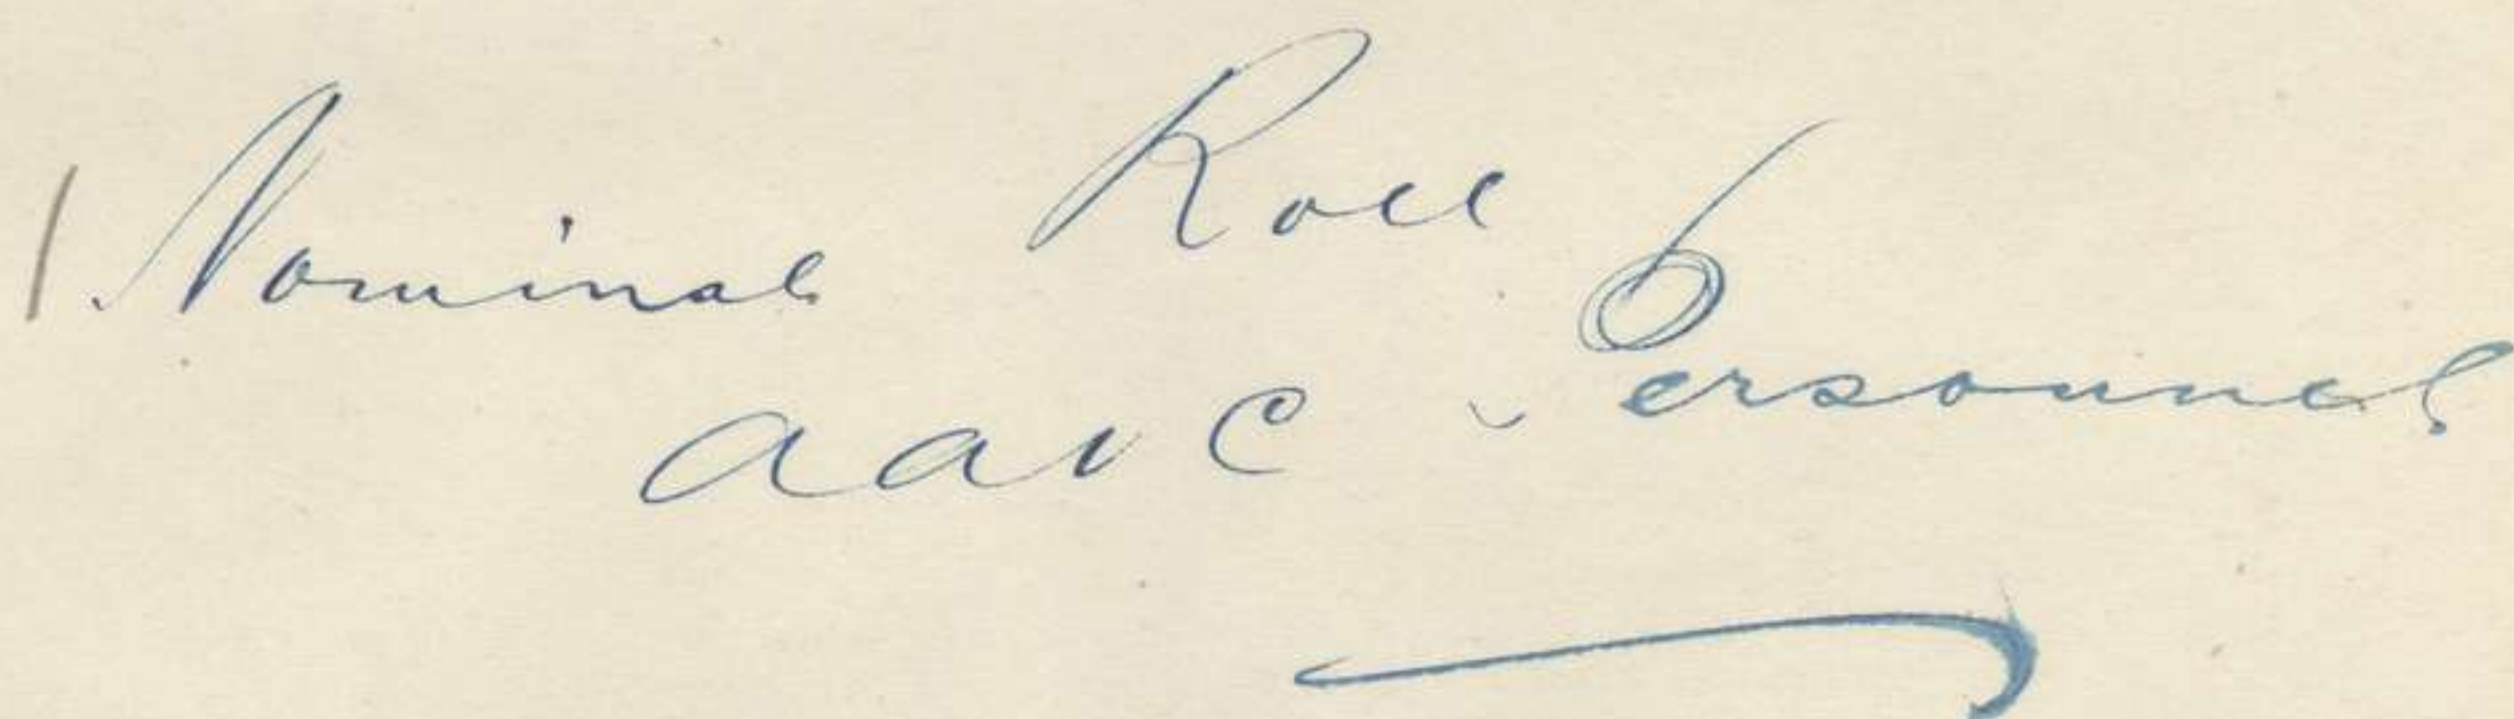 Nominal Roll
AAVC Personnel